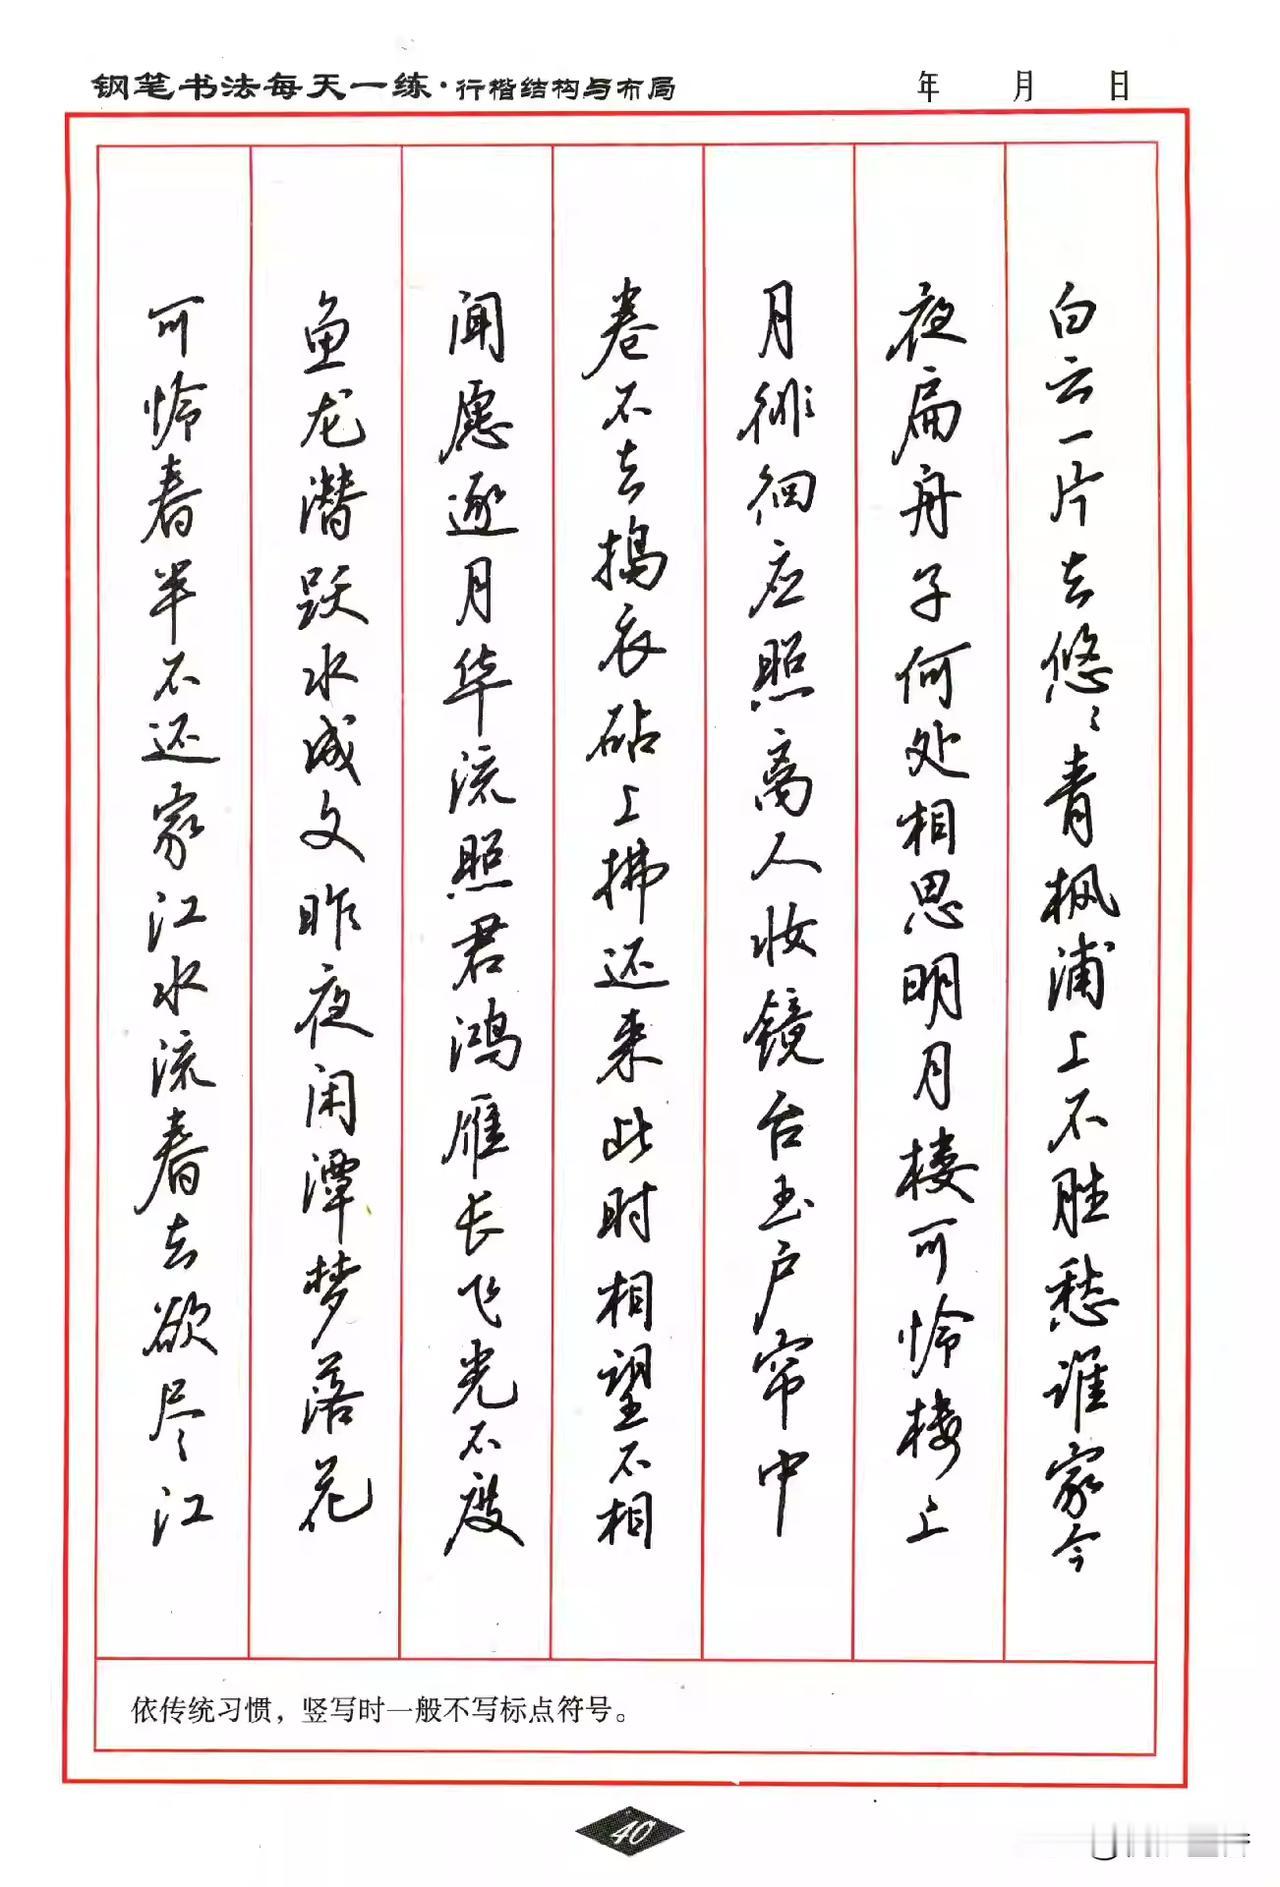 钢笔书法每天一练·行楷结构与布局 年 月 日
白云一片去悠々青枫浦上不胜愁谁家今
夜扁舟子何处相思明月楼可怜楼上
月徘徊应照离人妆镜台玉户帘中
卷不去捣衣砧上拂还来此时相望不相
闻愿逐月华流照君鸿雁长飞光不度
鱼龙潜跃水成文昨夜闲潭梦落花
可怜春半不还家江水流春去欲尽江
依传统习惯，竖写时一般不写标点符号。
40